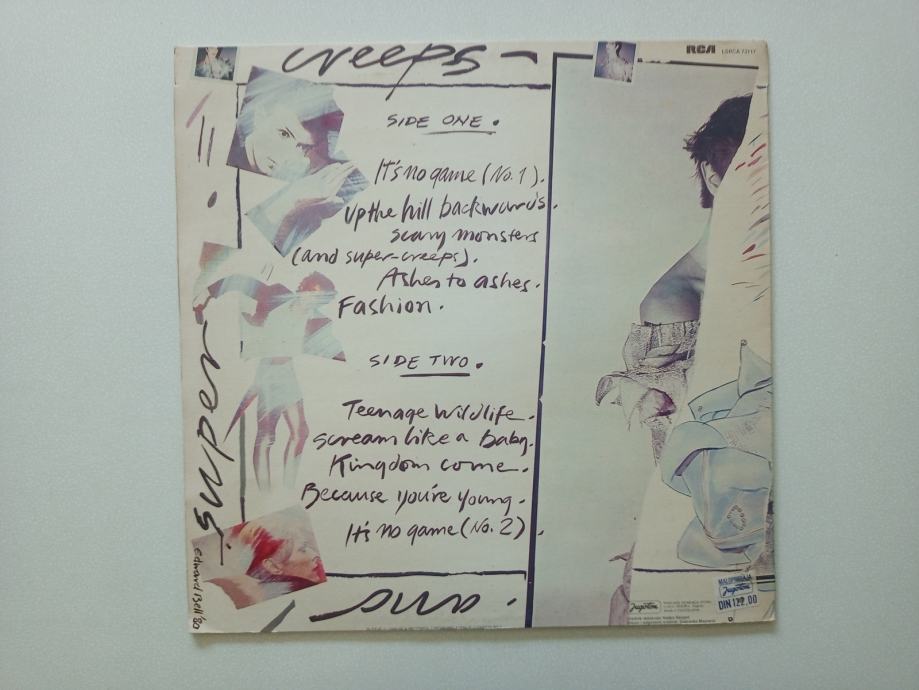 creeps
RCA LSRCA 73117
SIDE ONE.
It's no game (No. 1).
up the hill backwards.
scary monsters
(and super-creeps).
Ashes to ashes.
Fashion.
SIDE TWO.
Teenage wildlife.
scream like a baby.
Kingdom come.
Because you're young.
It's no game (No. 2).
super
Edward Bell '80
and.
Jugoton
MALOPRODAJA
Jugoton
DIN 122,00